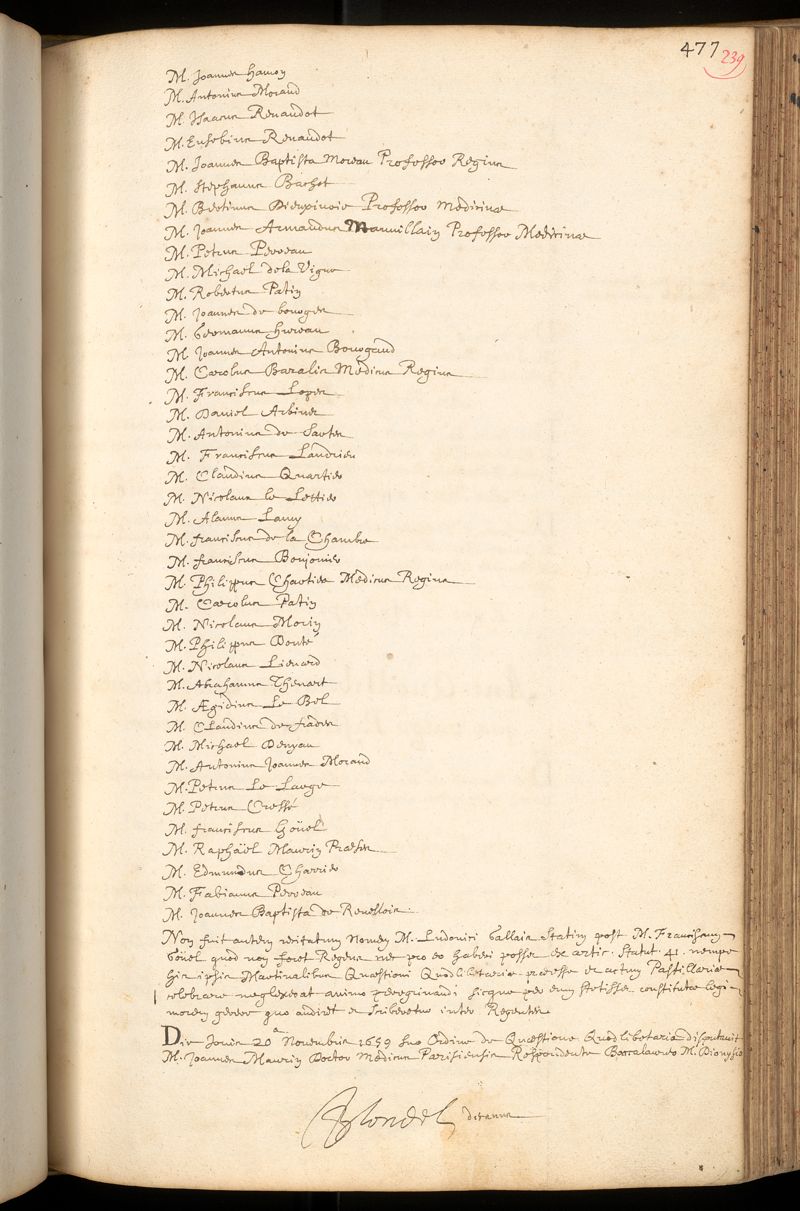 477
239
M. Joannes Hamon
M. Antonius Morand
M. Isaacus Renaudot
M. Eusebius Renaudot
M. Joannes Baptista Moreau Professor Regius
M. Stephanus Bachot
M. Bertinus Dieuxivoie Professor Medicinæ
M. Joannes Armandus Mauvillain Professor Medicinæ
M. Petrus Perreau
M. Michael de la Vigne
M. Robertus Patin
M. Joannes de bourges
M. Germanus hureau
M. Joannes Antonius Bourgaud
M. Carolus Baralis Medicus Regius
M. Franciscus Lopes
M. Daniel Arbinet
M. Antonius de Sarte
M. Franciscus Landrieu
M. Claudius Quartier
M. Nicolaus le Lettier
M. Alanus Lamy
M. franciscus de la Chambre
M. franciscus Bonjonier
M. Philippus Chartier Medicus Regius
M. Carolus Patin
M. Nicolaus Morin
M. Philippus Douté
M. Nicolaus Lienard
M. Abrahamus Thevart
M. Ægidius Le Bel
M. Claudius de frades
M. Michael Denyau
M. Antonius Joannes Morand
M. Petrus Le Large
M. Petrus Cressé
M. franciscus Goüel
M. Raphäel Maurin Præses
M. Edmundus Charrier
M. Fabianus Perreau
M. Joannes Baptista de Revellois
Non fuit autem recitatum nomen M. Ludovici Gallais Statim post M. Franciscum
Goüel quod non foret Regens nec pro eo haberi posset ex artic. Statut. 41. nempe
his ipsis Martinalibus Quæstioni Quodlibetariæ præesse et actum Pastillariæ
celebrare neglexerat animo peregrinandi sicque per eum stetisset constitutæ legi
morem gerere quo audiret et scriberetur inter Regentes
Die Jovis 20a Novembris 1659 suo Ordine de Quæstione Quodlibetaria disputavit
M. Joannes Maurin Doctor Medicus Parisiensis Respondente Baccalaureo M. Dionysio
Blondel decanus